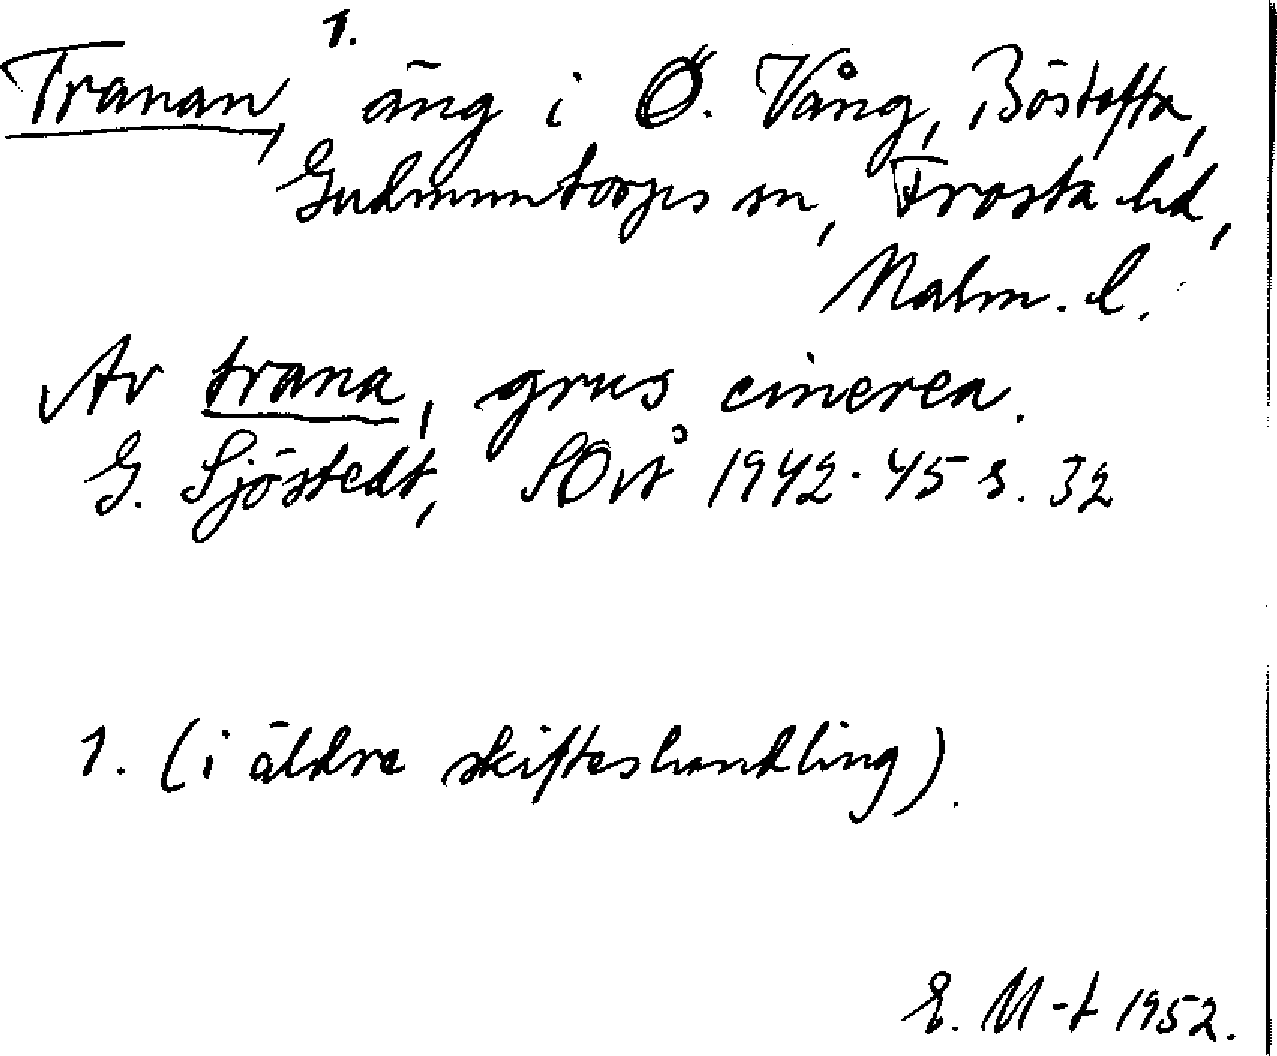 1.
Tranan, äng i Ö. Vång, Böstofta,
Gudmuntorps sn, Frosta hd,
Malm. l.
Av trana, grus cinerea.
G. Sjöstedt, SOrtÅ 1942-45 s. 32
1. (i äldre skifteshandling).
E. M-t 1952.